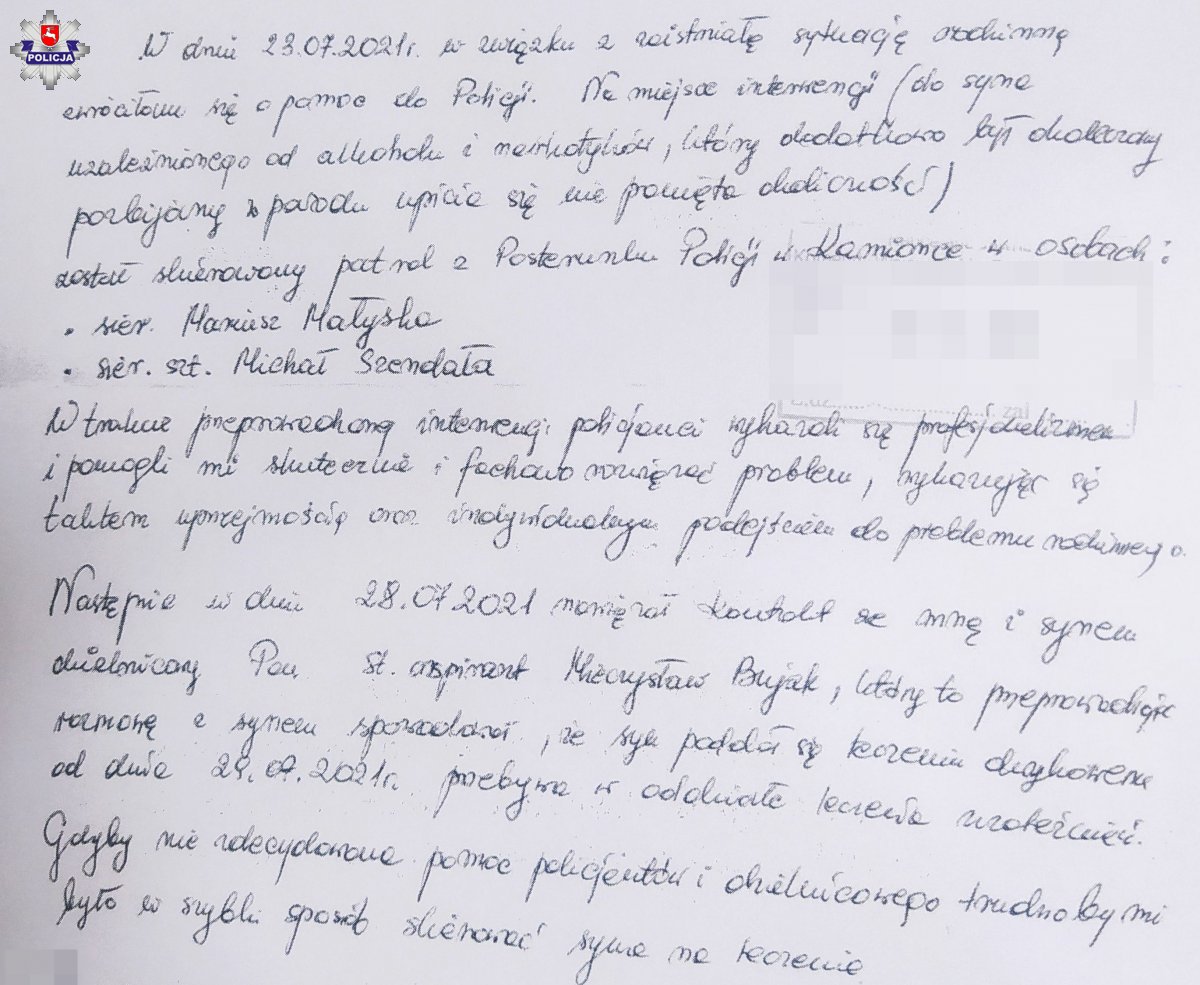 POLICJA
W dniu 23.07.2021r. w związku z zaistniałą sytuacją rodzinną
zwróciłam się o pomoc do Policji. Na miejsce interwencji (do syna
uzależnionego od alkoholu i narkotyków, który dodatkowo był okaleczony
porozbijany z powodu upicia się nie pamięta okoliczności)
został skierowany patrol z Posterunku Policji w Kamionce w osobach:
• sier. Mariusz Małyska
• sier. szt. Michał Szendała
W trakcie przeprowadzonej interwencji policjanci wykazali się profesjonalizmem
i pomogli mi skutecznie i fachowo rozwiązać problem, wykazując się
taktem uprzejmością oraz indywidualnym podejściem do problemu rodzinnego.
Następnie w dniu 28.07.2021 nawiązał kontakt ze mną i synem
dzielnicowy Pan st. aspirant Mieczysław Bujak, który to przeprowadzając
rozmowę z synem spowodował, że syn poddał się leczeniu odwykowemu
od dnia 29.07.2021r. przebywa w oddziale leczenia uzależnień.
Gdyby nie zdecydowana pomoc policjantów i dzielnicowego trudno by mi
było w szybki sposób skierować syna na leczenie